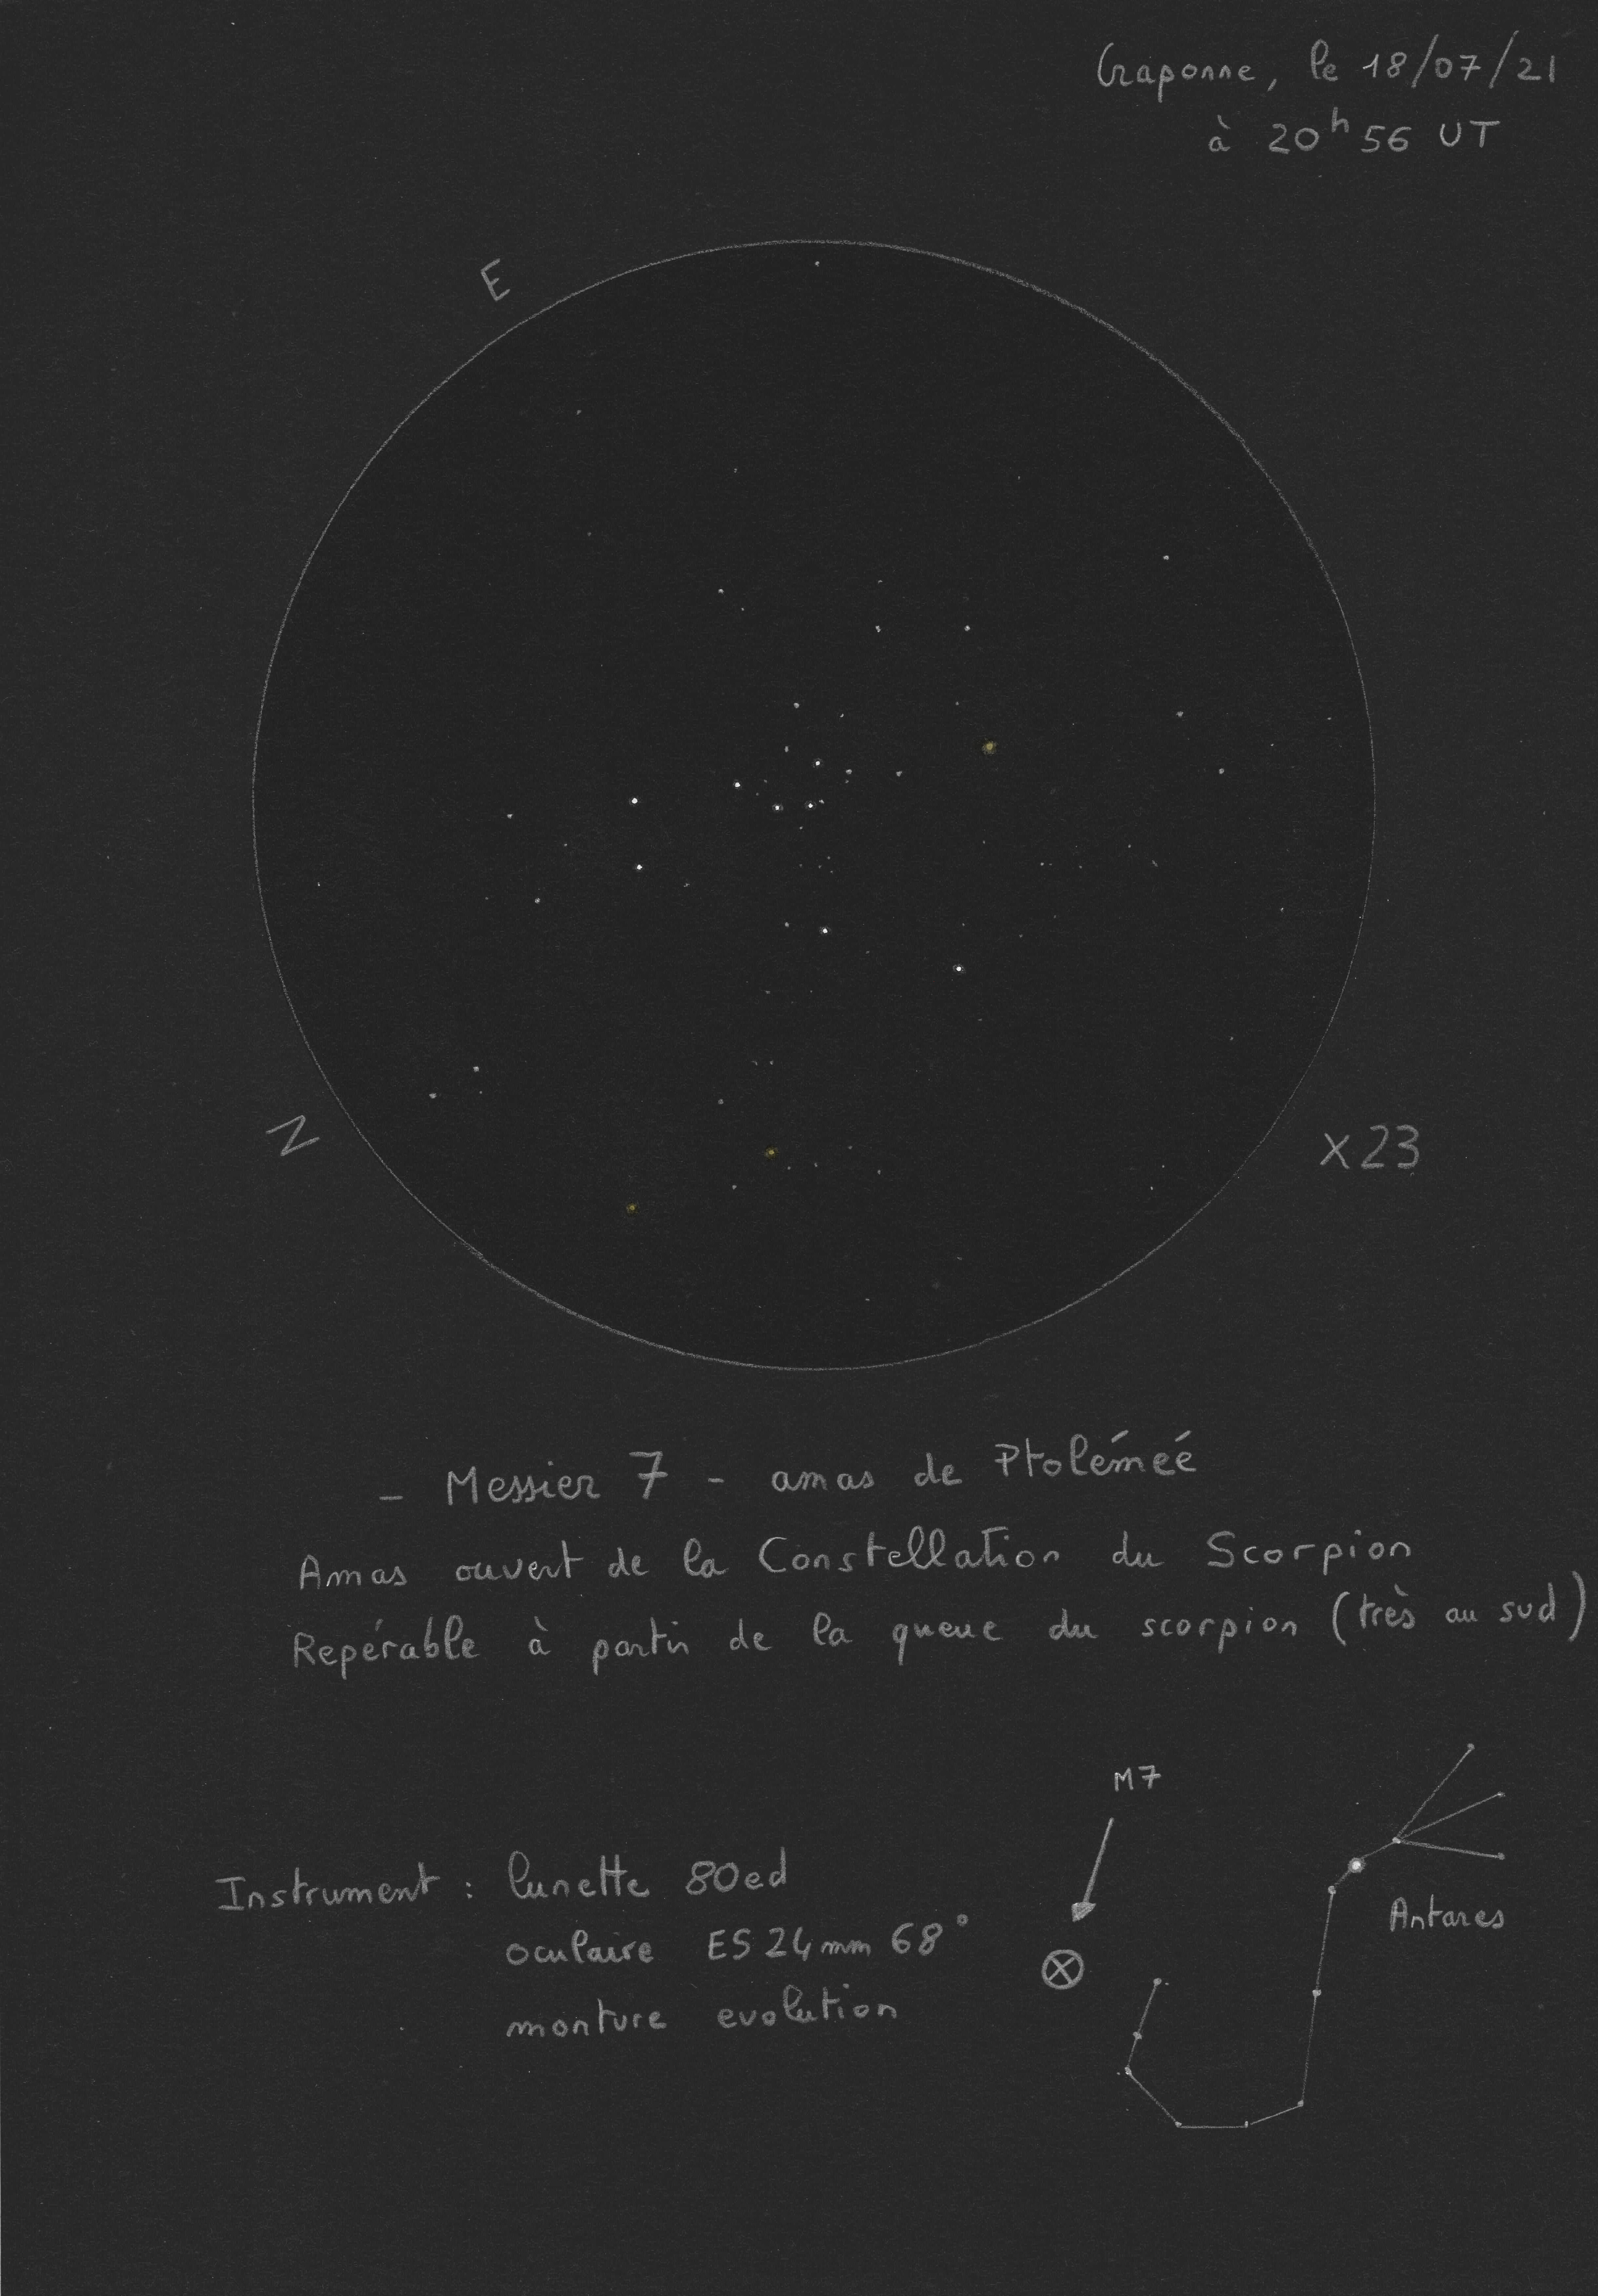 Craponne, le 18/07/21
à 20h56 UT
E
N
x23
- Messier 7 - amas de Ptoléméé
Amas ouvert de la Constellation du Scorpion
Repérable à partir de la queue du scorpion (très au sud)
M7
Instrument : lunette 80ed
Antares
oculaire ES 24mm 68°
monture evolution